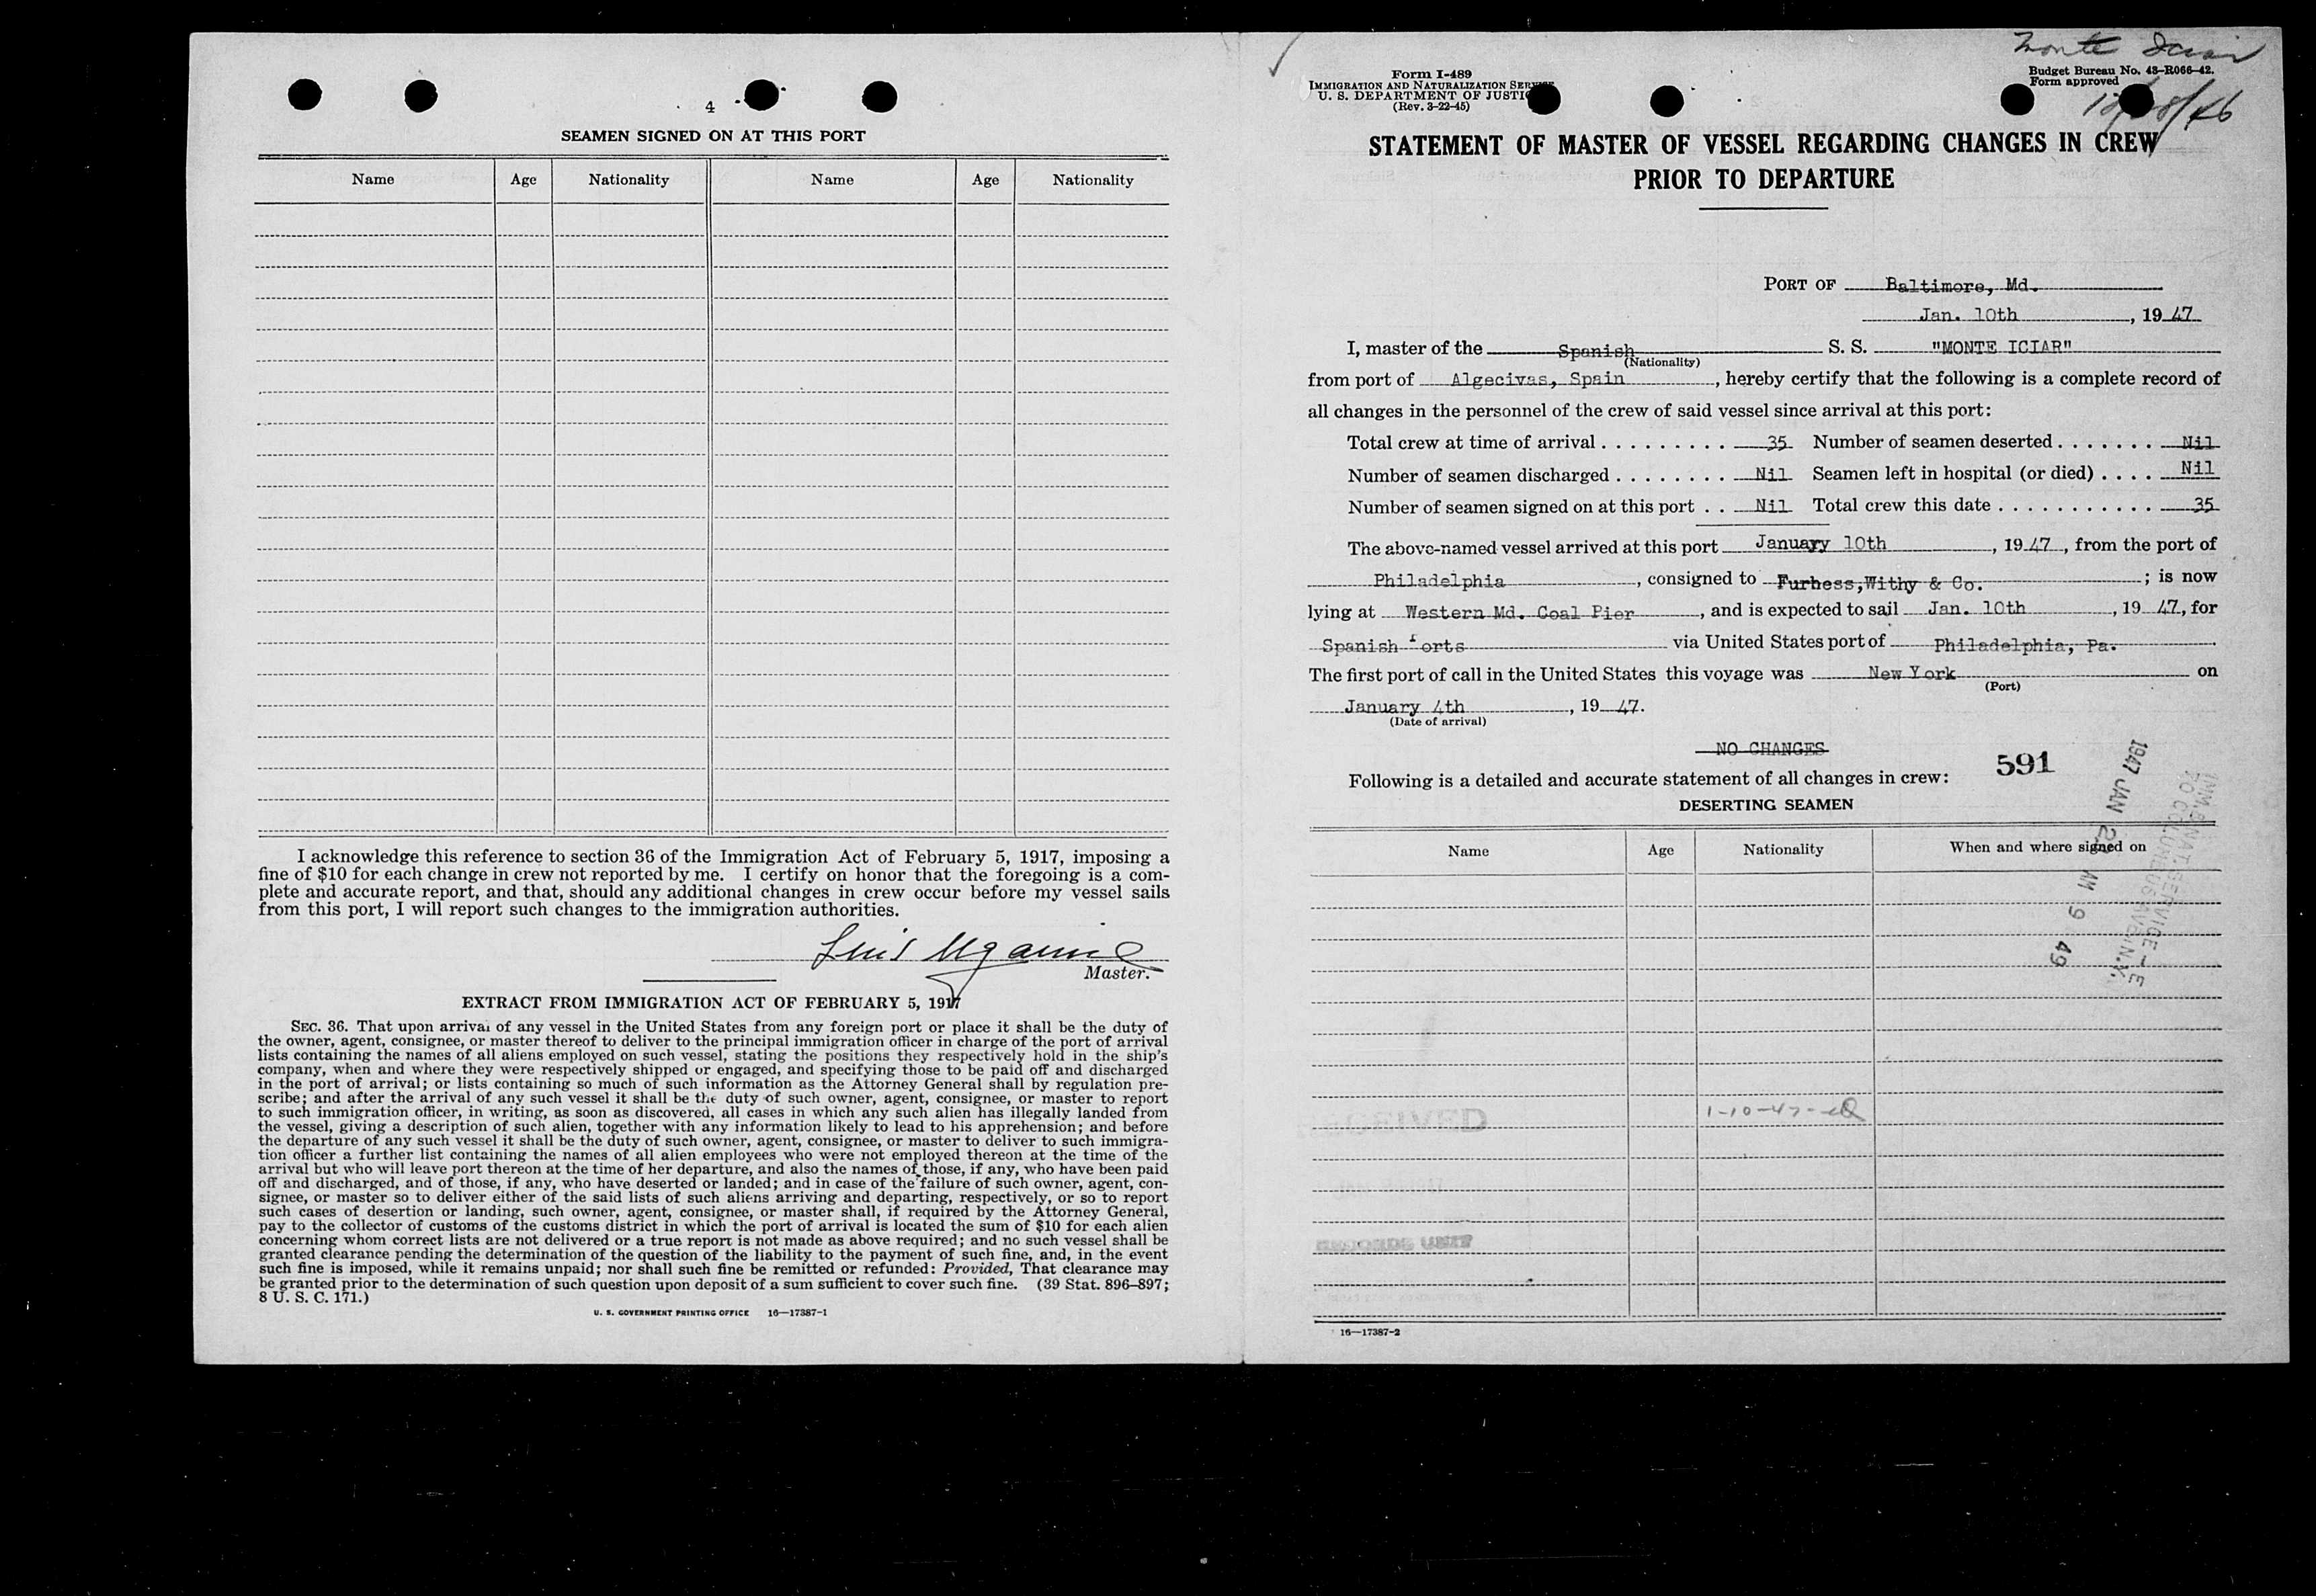 4
SEAMEN SIGNED ON AT THIS PORT
Name Age Nationality Name Age Nationality
I acknowledge this reference to section 36 of the Immigration Act of February 5, 1917, imposing a
fine of $10 for each change in crew not reported by me. I certify on honor that the foregoing is a com-
plete and accurate report, and that, should any additional changes in crew occur before my vessel sails
from this port, I will report such changes to the immigration authorities.
Luis
Master.
EXTRACT FROM IMMIGRATION ACT OF FEBRUARY 5, 1917
SEC. 36. That upon arrival of any vessel in the United States from any foreign port or place it shall be the duty of
the owner, agent, consignee, or master thereof to deliver to the principal immigration officer in charge of the port of arrival
lists containing the names of all aliens employed on such vessel, stating the positions they respectively hold in the ship's
company, when and where they were respectively shipped or engaged, and specifying those to be paid off and discharged
in the port of arrival; or lists containing so much of such information as the Attorney General shall by regulation pre-
scribe; and after the arrival of any such vessel it shall be the duty of such owner, agent, consignee, or master to report
to such immigration officer, in writing, as soon as discovered, all cases in which any such alien has illegally landed from
the vessel, giving a description of such alien, together with any information likely to lead to his apprehension; and before
the departure of any such vessel it shall be the duty of such owner, agent, consignee, or master to deliver to such immigra-
tion officer a further list containing the names of all alien employees who were not employed thereon at the time of the
arrival but who will leave port thereon at the time of her departure, and also the names of those, if any, who have been paid
off and discharged, and of those, if any, who have deserted or landed; and in case of the failure of such owner, agent, con-
signee, or master so to deliver either of the said lists of such aliens arriving and departing, respectively, or so to report
such cases of desertion or landing, such owner, agent, consignee, or master shall, if required by the Attorney General,
pay to the collector of customs of the customs district in which the port of arrival is located the sum of $10 for each alien
concerning whom correct lists are not delivered or a true report is not made as above required; and no such vessel shall be
granted clearance pending the determination of the question of the liability to the payment of such fine, and, in the event
such fine is imposed, while it remains unpaid; nor shall such fine be remitted or refunded: Provided, That clearance may
be granted prior to the determination of such question upon deposit of a sum sufficient to cover such fine. (39 Stat. 896–897;
8 U. S. C. 171.)
U. S. GOVERNMENT PRINTING OFFICE 16—17387-1
Monte Iciar
Form I-489
IMMIGRATION AND NATURALIZATION SERVICE
U. S. DEPARTMENT OF JUSTICE
(Rev. 3-22-45)
Budget Bureau No. 43-R066-42.
Form approved
STATEMENT OF MASTER OF VESSEL REGARDING CHANGES IN CREW
PRIOR TO DEPARTURE
PORT OF Baltimore, Md.
Jan. 10th, 1947
I, master of the Spanish S. S. "MONTE ICIAR"
(Nationality)
from port of Algecivas, Spain, hereby certify that the following is a complete record of
all changes in the personnel of the crew of said vessel since arrival at this port:
Total crew at time of arrival . . . . . . . . . 35 Number of seamen deserted . . . . . . . Nil
Number of seamen discharged . . . . . . . . Nil Seamen left in hospital (or died) . . . . Nil
Number of seamen signed on at this port . . Nil Total crew this date . . . . . . . . . . . 35
The above-named vessel arrived at this port January 10th, 1947, from the port of
Philadelphia, consigned to Furhess,Withy & Co.; is now
lying at Western Md. Coal Pier, and is expected to sail Jan. 10th, 1947, for
Spanish Ports via United States port of Philadelphia, Pa.
The first port of call in the United States this voyage was New York on
(Port)
January 4th, 1947.
(Date of arrival)
NO CHANGES
591
Following is a detailed and accurate statement of all changes in crew:
DESERTING SEAMEN
Name Age Nationality When and where signed on
1947 JAN AM 9 49
1-10-47
RECEIVED
RECORDS UNIT
16—17387-2